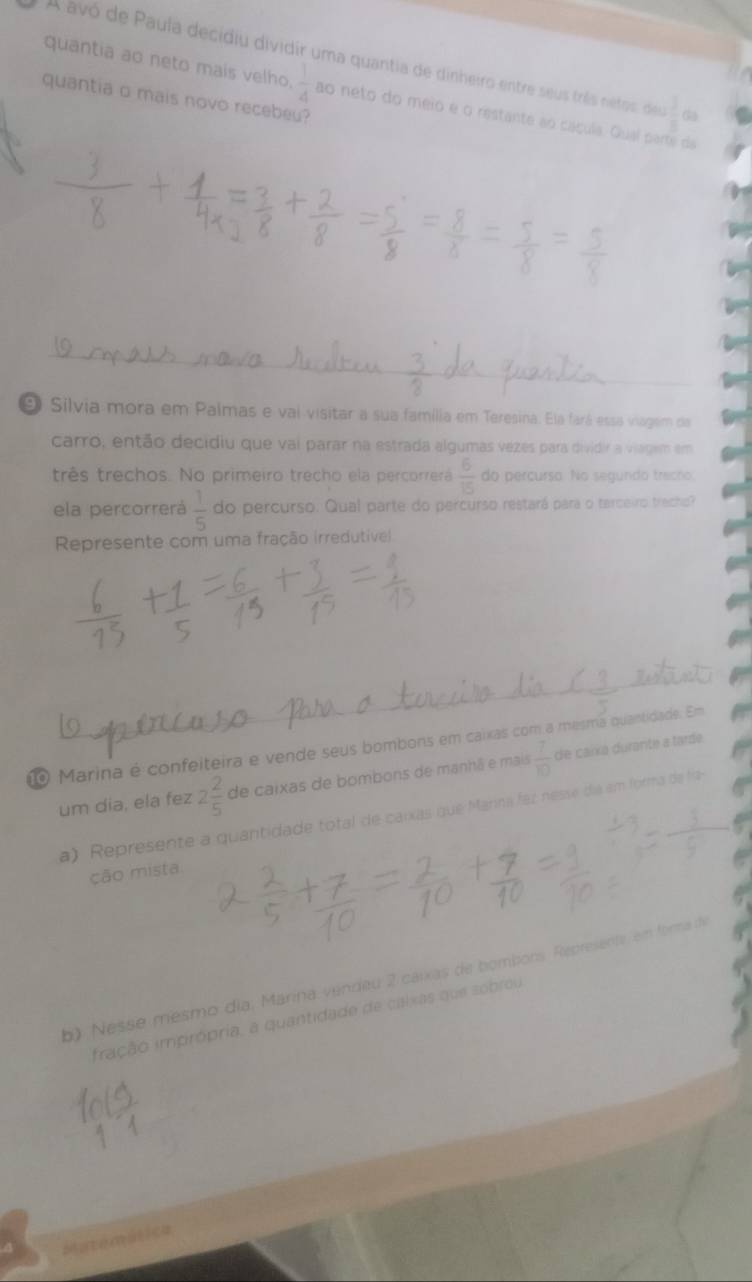 A avó de Paula decidiu dividir uma quantia de dinheiro entre seus três netos: deu 3/8 da
quantia ao neto mais velho, 1/4 ao neto do meio e o restante ao caçula. Qual parte da
quantia o mais novo recebeu?
3/8 + 1/4×2 = 3/8 + 2/8 = 5/8 = 8/8 = 5/8 = 5/8
O mais novo recebeu 3/8 da quantia
9 Silvia mora em Palmas e vai visitar a sua família em Teresina. Ela fará essa viagem de
carro, então decidiu que vai parar na estrada algumas vezes para dividir a viagem em
três trechos. No primeiro trecho ela percorrerá 6/15 do percurso. No segundo trecho,
ela percorrerá 1/5 do percurso. Qual parte do percurso restará para o terceiro trecho?
Represente com uma fração irredutível.
6/15 + 1/5 = 6/15 + 3/15 = 9/15
O percuso para o terceiro dia
10 Marina é confeiteira e vende seus bombons em caixas com a mesma quantidade. Em
um dia, ela fez 2 2/5 de caixas de bombons de manhã e mais 7/10 de caixa durante a tarde.
a) Represente a quantidade total de caixas que Marina fez nesse dia em forma de fra-
ção mista.
2 2/5 + 7/10 = 2/10 + 7/10 = 9/10 ÷3 = 3/5
b) Nesse mesmo dia, Marina vendeu 2 caixas de bombons. Represente, em forma de
fração imprópria, a quantidade de caixas que sobrou.
4 Matemática